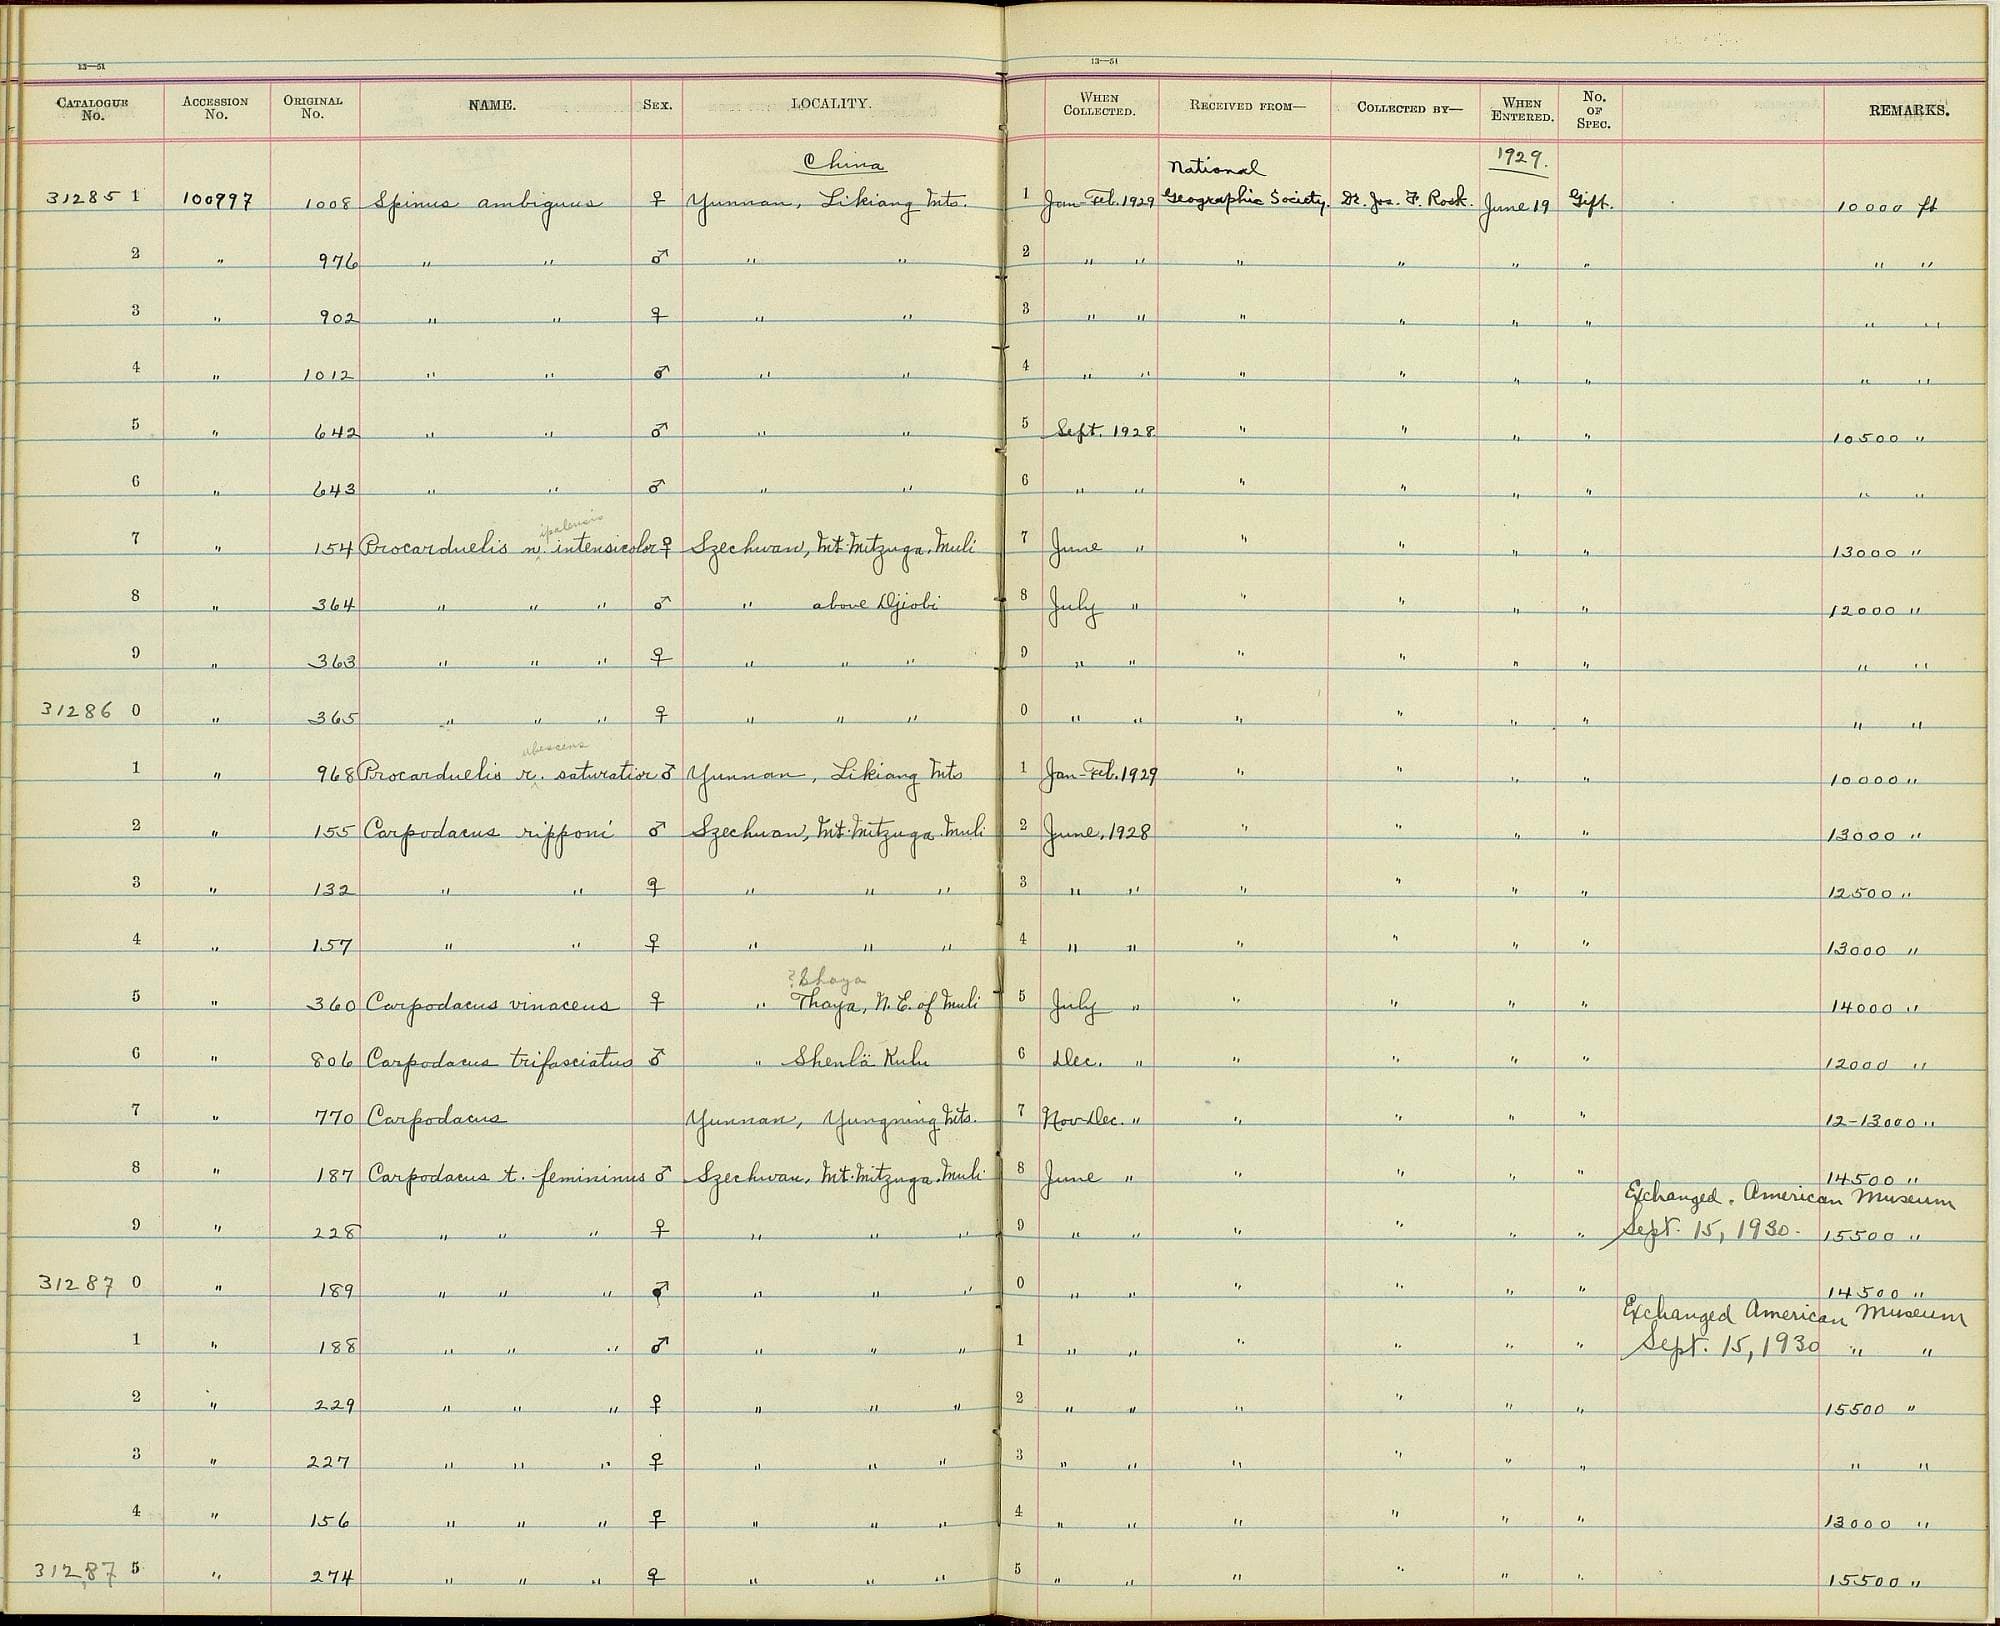 13—51 13—51
CATALOGUE No. ACCESSION No. ORIGINAL No. NAME. SEX. LOCALITY. WHEN COLLECTED. RECEIVED FROM— COLLECTED BY— WHEN ENTERED. No. OF SPEC. REMARKS.
China National 1929.
31285 1 100997 1008 Spinus ambiguus ♀ Yunnan, Likiang Mts. 1 Jan-Feb. 1929 Geographic Society. Dr. Jos. F. Rock. June 19 Gift. 10000 ft
2 " 976 " " ♂ " " 2 " " " " " " " "
3 " 902 " " ♀ " " 3 " " " " " " " "
4 " 1012 " " ♂ " " 4 " " " " " " " "
5 " 642 " " ♂ " " 5 Sept. 1928 " " " " 10500 "
6 " 643 " " ♂ " " 6 " " " " " " " "
ipalensis
7 " 154 Procarduelis n. intensicolor ♀ Szechwan, Mt. Mitzuga, Muli 7 June " " " " " 13000 "
8 " 364 " " " ♂ " above Djiobi 8 July " " " " " 12000 "
9 " 363 " " " ♀ " " " 9 " " " " " " " "
31286 0 " 365 " " " ♀ " " " 0 " " " " " " " "
ubescens
1 " 968 Procarduelis r. saturatior ♂ Yunnan, Likiang Mts 1 Jan-Feb. 1929 " " " " 10000 "
2 " 155 Carpodacus ripponi ♂ Szechuan, Mt. Mitzuga. Muli 2 June, 1928 " " " " 13000 "
3 " 132 " " ♀ " " " 3 " " " " " " 12500 "
4 " 157 " " ♀ " " " 4 " " " " " " 13000 "
? Shaya
5 " 360 Carpodacus vinaceus ♀ " Thaya, N. E. of Muli 5 July " " " " " 14000 "
6 " 806 Carpodacus trifasciatus ♂ " Shenlä Kulu 6 Dec. " " " " " 12000 "
7 " 770 Carpodacus Yunnan, Yungning Mts. 7 Nov-Dec. " " " " " 12-13000 "
8 " 187 Carpodacus t. femininus ♂ Szechwan, Mt. Mitzuga. Muli 8 June " " " " " 14500 "
Exchanged. American Museum
9 " 228 " " " ♀ " " " 9 " " " " " " Sept. 15, 1930. 15500 "
31287 0 " 189 " " " ♂ " " " 0 " " " " " " 14500 "
Exchanged American Museum
1 " 188 " " " ♂ " " " 1 " " " " " " Sept. 15, 1930 " "
2 " 229 " " " ♀ " " " 2 " " " " " " 15500 "
3 " 227 " " " ♀ " " " 3 " " " " " " " "
4 " 156 " " " ♀ " " " 4 " " " " " " 13000 "
31287 5 " 274 " " " ♀ " " " 5 " " " " " " 15500 "